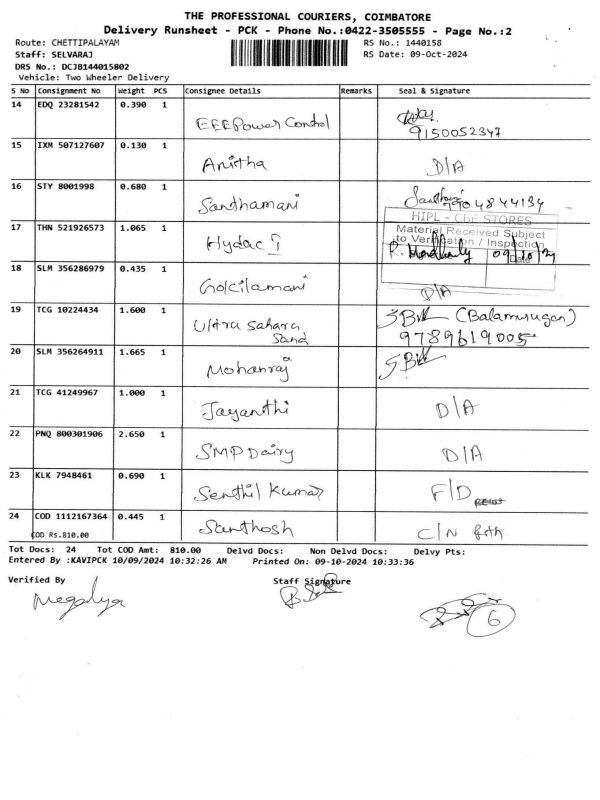 THE PROFESSIONAL COURIERS, COIMBATORE
Delivery Runsheet - PCK - Phone No.:0422-3505555 - Page No.:2
Route: CHETTIPALAYAM
RS No.: 1440158
Staff: SELVARAJ
RS Date: 09-Oct-2024
DRS No.: DCJB144015802
Vehicle: Two Wheeler Delivery
S No Consignment No Weight PCS Consignee Details Remarks Seal & Signature
14 EDQ 23281542 0.390 1 EEEPower Control
9150052347
15 IXM 507127607 0.130 1 Anitha D/A
16 STY 8001998 0.680 1 Sandhamani
9904844134
HIPL - CBE STORES
17 THN 521926573 1.065 1 Hydac
Material Received Subject
to Verification / Inspection
09/10/24
Date
18 SLM 356286979 0.435 1 Gokilamani D/A
19 TCG 10224434 1.600 1 Ultra Sahara Sand (Balamurugan)
9789619005
20 SLM 356264911 1.665 1 Mohanraj
21 TCG 41249967 1.000 1 Jayanthi D/A
22 PNQ 800301906 2.650 1 SMP Dairy D/A
23 KLK 7948461 0.690 1 Senthil Kumar F/D
24 COD 1112167364 0.445 1 Santhosh C/N
COD Rs.810.00
Tot Docs: 24 Tot COD Amt: 810.00 Delvd Docs: Non Delvd Docs: Delvy Pts:
Entered By :KAVIPCK 10/09/2024 10:32:26 AM Printed On: 09-10-2024 10:33:36
Verified By Staff Signature
Megalya
6